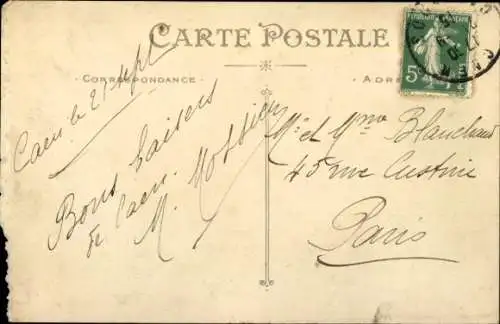 CARTE POSTALE
CORRESPONDANCE
Caen le 21 Sept
Bons baisers
de Caen.
M.
ADRE
Mr et Mme Blanchard
45 rue Custine
Paris
5c